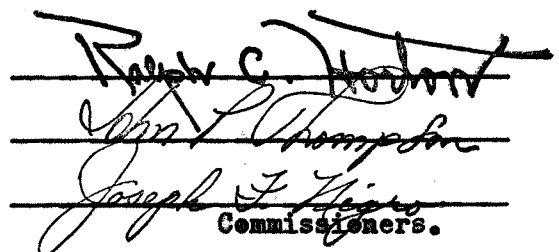 Ralph C. Horton
John P Thompson
Joseph F. Nigro
Commissioners.